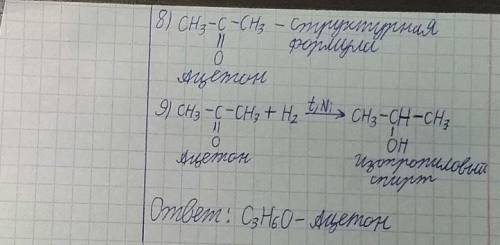 8) CH₃-C-CH₃ - структурная
‖ формула
O
Ацетон
9) CH₃-C-CH₃ + H₂ t,Ni→ CH₃-CH-CH₃
‖ |
O OH
Ацетон изопропиловый
спирт
Ответ: C₃H₆O - Ацетон